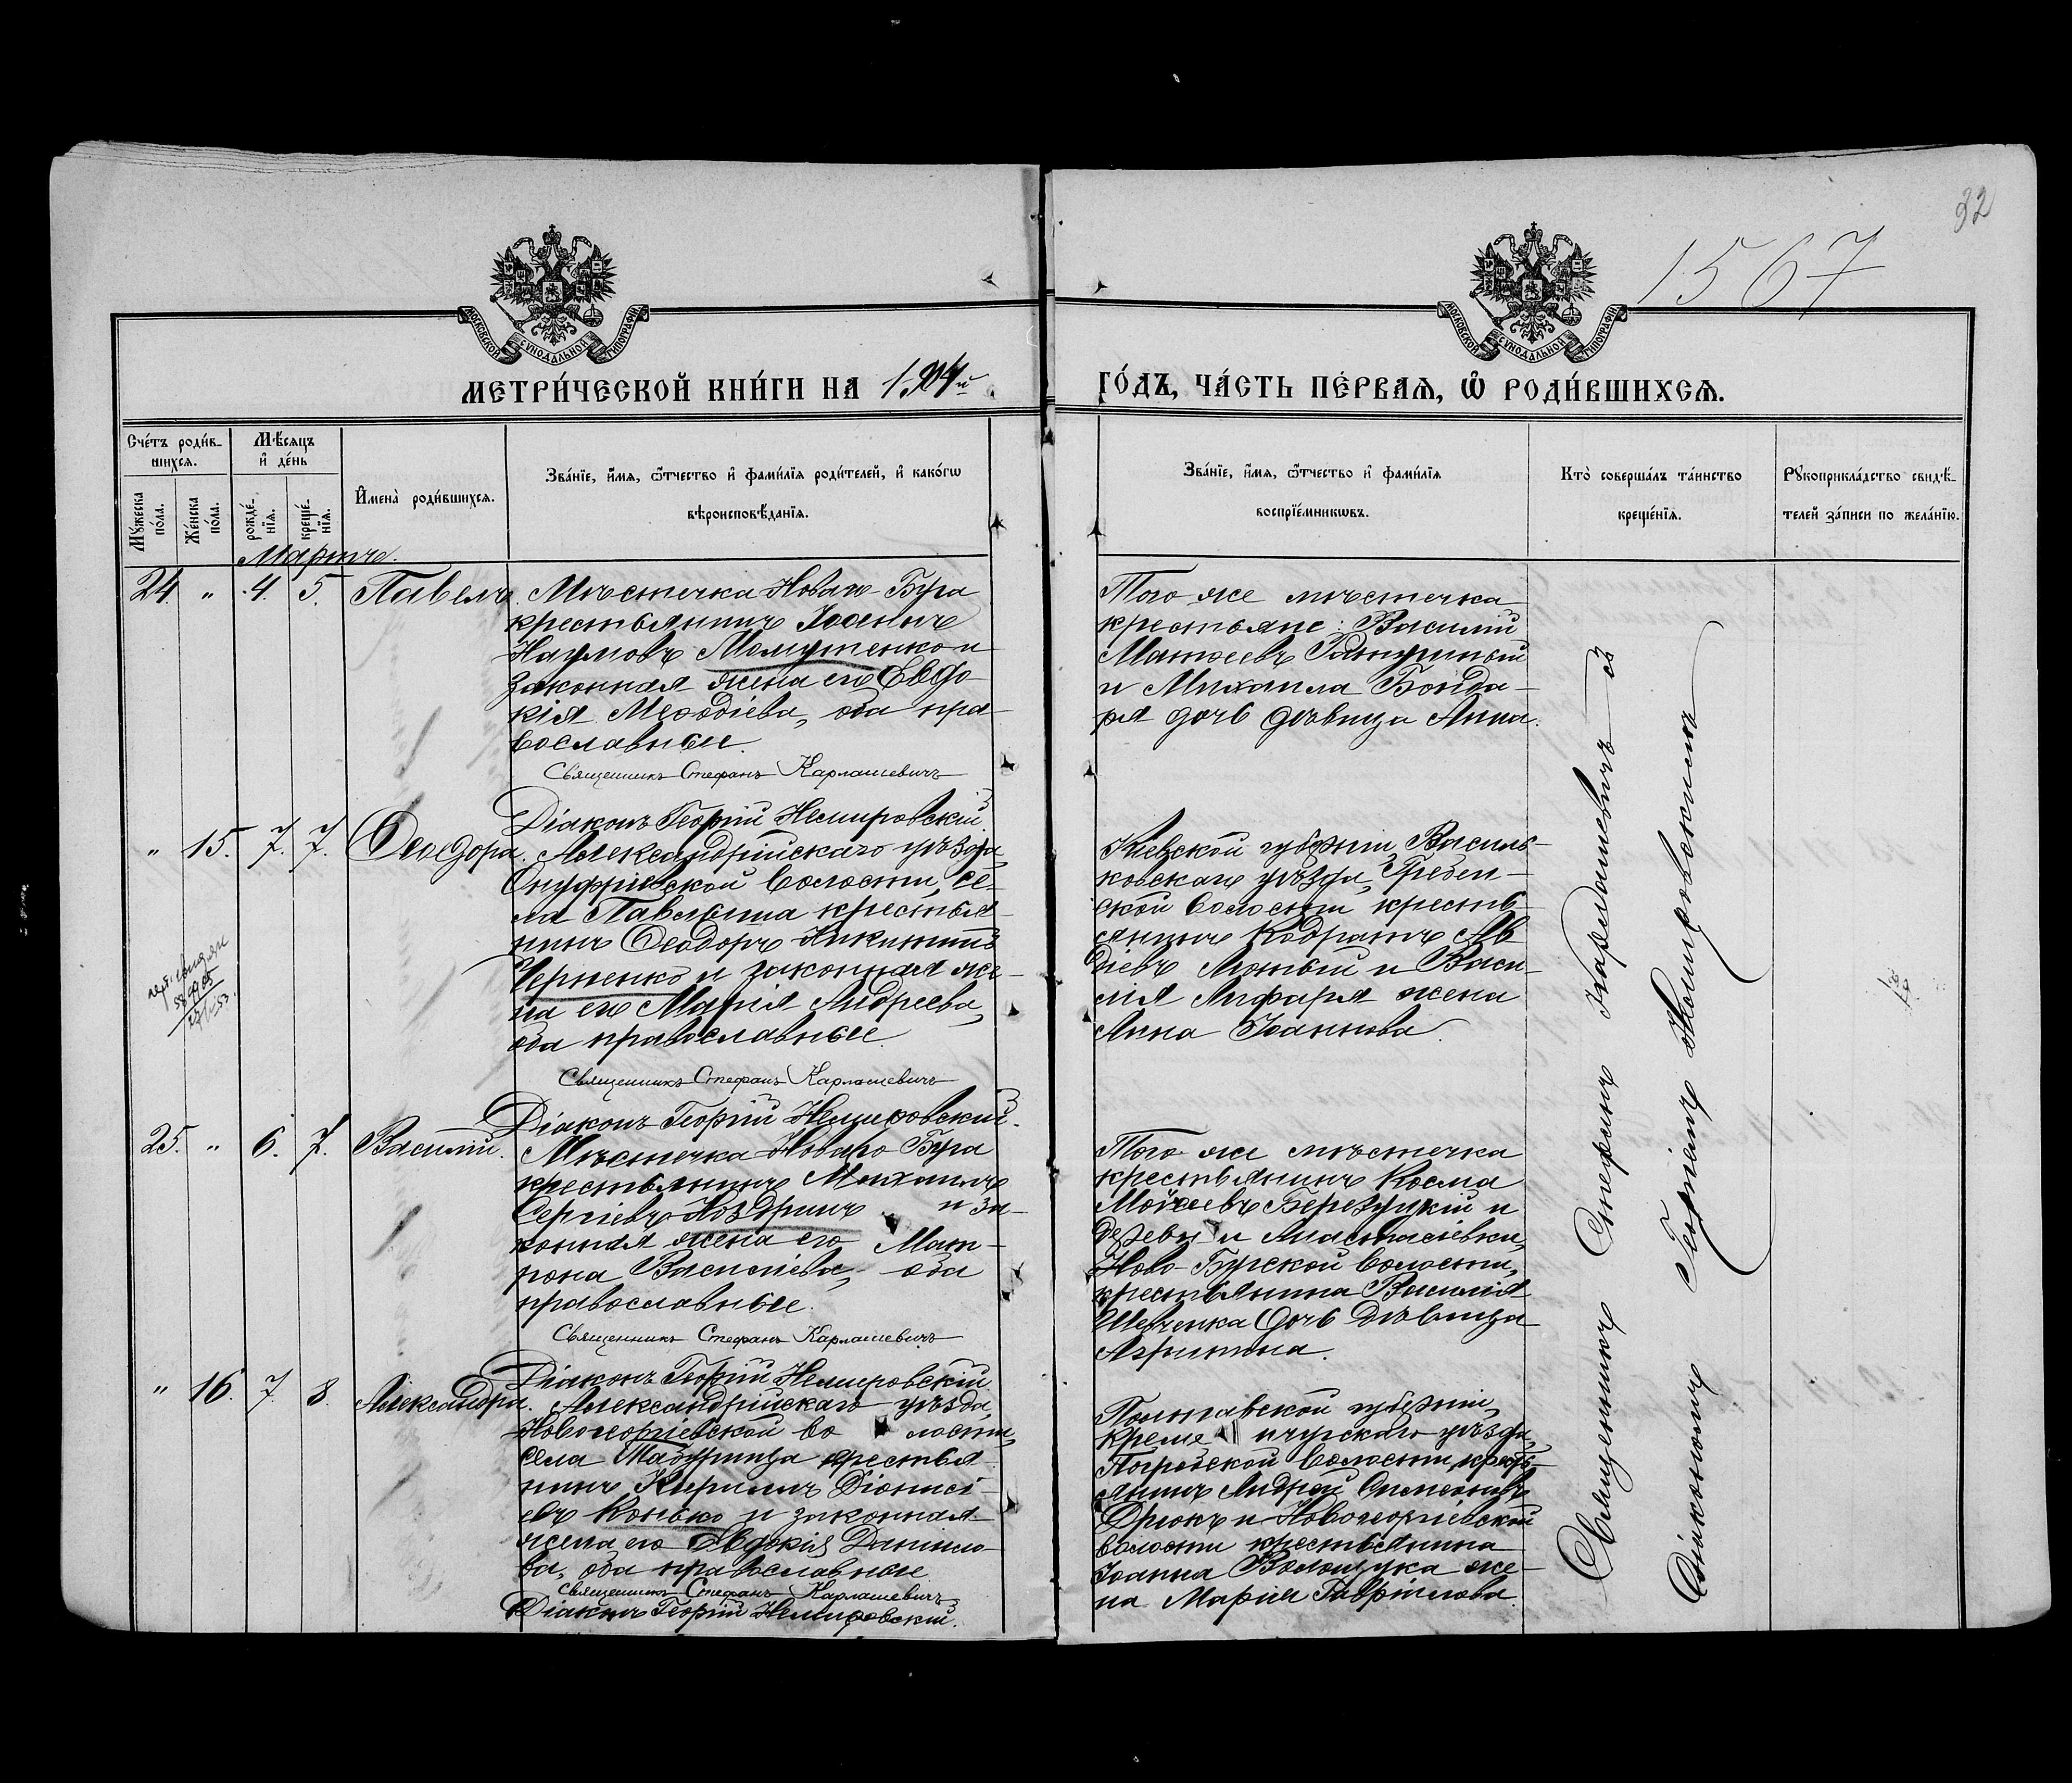 32
1567
МОСКОВСКОЙ СѴНОДАЛЬНОЙ ТИПОГРАФІИ
МОСКОВСКОЙ СѴНОДАЛЬНОЙ ТИПОГРАФІИ
МЕТРИ́ЧЕСКОЙ КНИ́ГИ НА 1904й
ГО́ДЪ, ЧА́СТЬ ПЕ́РВАѦ, Ѡ҆ РОДИ́ВШИХСѦ.
Сче́тъ роди́в-
шихсѧ.
Мꙋ́жеска по́ла.
Же́нска по́ла.
Мѣ́сѧцъ
и҆ де́нь
рожде́-
нїѧ.
креще́-
нїѧ.
И҆мена̀ роди́вшихсѧ.
Зва́нїе, и҆́мѧ, ѻ҆́тчество и҆ фами́лїѧ роди́телей, и҆ како́гѡ
вѣроисповѣ́данїѧ.
Зва́нїе, и҆́мѧ, ѻ҆́тчество и҆ фами́лїѧ
воспрїе́мникѡвъ.
Кто̀ соверша́лъ та́инство
креще́нїѧ.
Рꙋкоприкла́дство свидѣ́-
телей за́писи по жела́нїю.
Мартъ.
24. " 4. 5. Павелъ.
Мѣстечка Новаго-Буга
крестьянинъ Іосифъ
Наумовъ Момутенко и
законная жена его Евдо-
кія Меѳодіева, оба пра-
вославные.
Священникъ Стефанъ Карлашевичъ
Діаконъ Георгій Немировскій.
Того же мѣстечка
крестьяне: Василій
Матѳеевъ
и Михаила Бонда-
ря дочь дѣвица Анна.
" 15. 7. 7. Ѳеодора.
Александрійскаго уѣзда,
Онуфріевской волости, се-
ла Павлыша крестья-
нинъ Ѳеодоръ
Черненко и законная же-
на его Марія Андреева,
оба православные.
Священникъ Стефанъ Карлашевичъ
Діаконъ Георгій Немировскій.
Кіевской губерніи, Василь-
ковскаго уѣзда, Гребен-
ской волости крестья-
янинъ Кодратъ Ав
діевъ и Васи-
лія Лифаря жена
Анна Іоаннова.
25. " 6. 7. Василій.
Мѣстечка Новаго Буга
крестьянинъ Михаилъ
Сергіевъ Ноздринъ и за-
конная жена его Мат-
рона Василіева, оба
православные.
Священникъ Стефанъ Карлашевичъ
Діаконъ Георгій Немировскій
Того же мѣстечка
крестьянинъ Косма
Моѵсеевъ Березуцкій и
деревни Анастасіевки,
Ново-Бугской волости,
крестьянина Василія
Шевченка дочь дѣвица
Агрипина.
" 16. 7. 8. Александра.
Александрійскаго уѣзда,
Новогеоргіевской во лости,
села Табурища крестья-
нинъ Кириллъ Діонисі-
евъ Конько и законная
жена его Евдокія Данило-
ва, оба православные.
Священникъ Стефанъ Карлашевичъ
Діаконъ Георгій Немировскій.
Полтавской губерніи,
Креме нчугскаго уѣзда,
Погребской волости, кресть-
янинъ Андрей Симеоновъ
Дрюкъ и Новогеоргіевской
волости крестьянина
Іоанна Волощука же-
на Марія Гавріилова.
Священникъ Стефанъ Карлашевичъ съ
Діакономъ Георгіемъ Немировскимъ